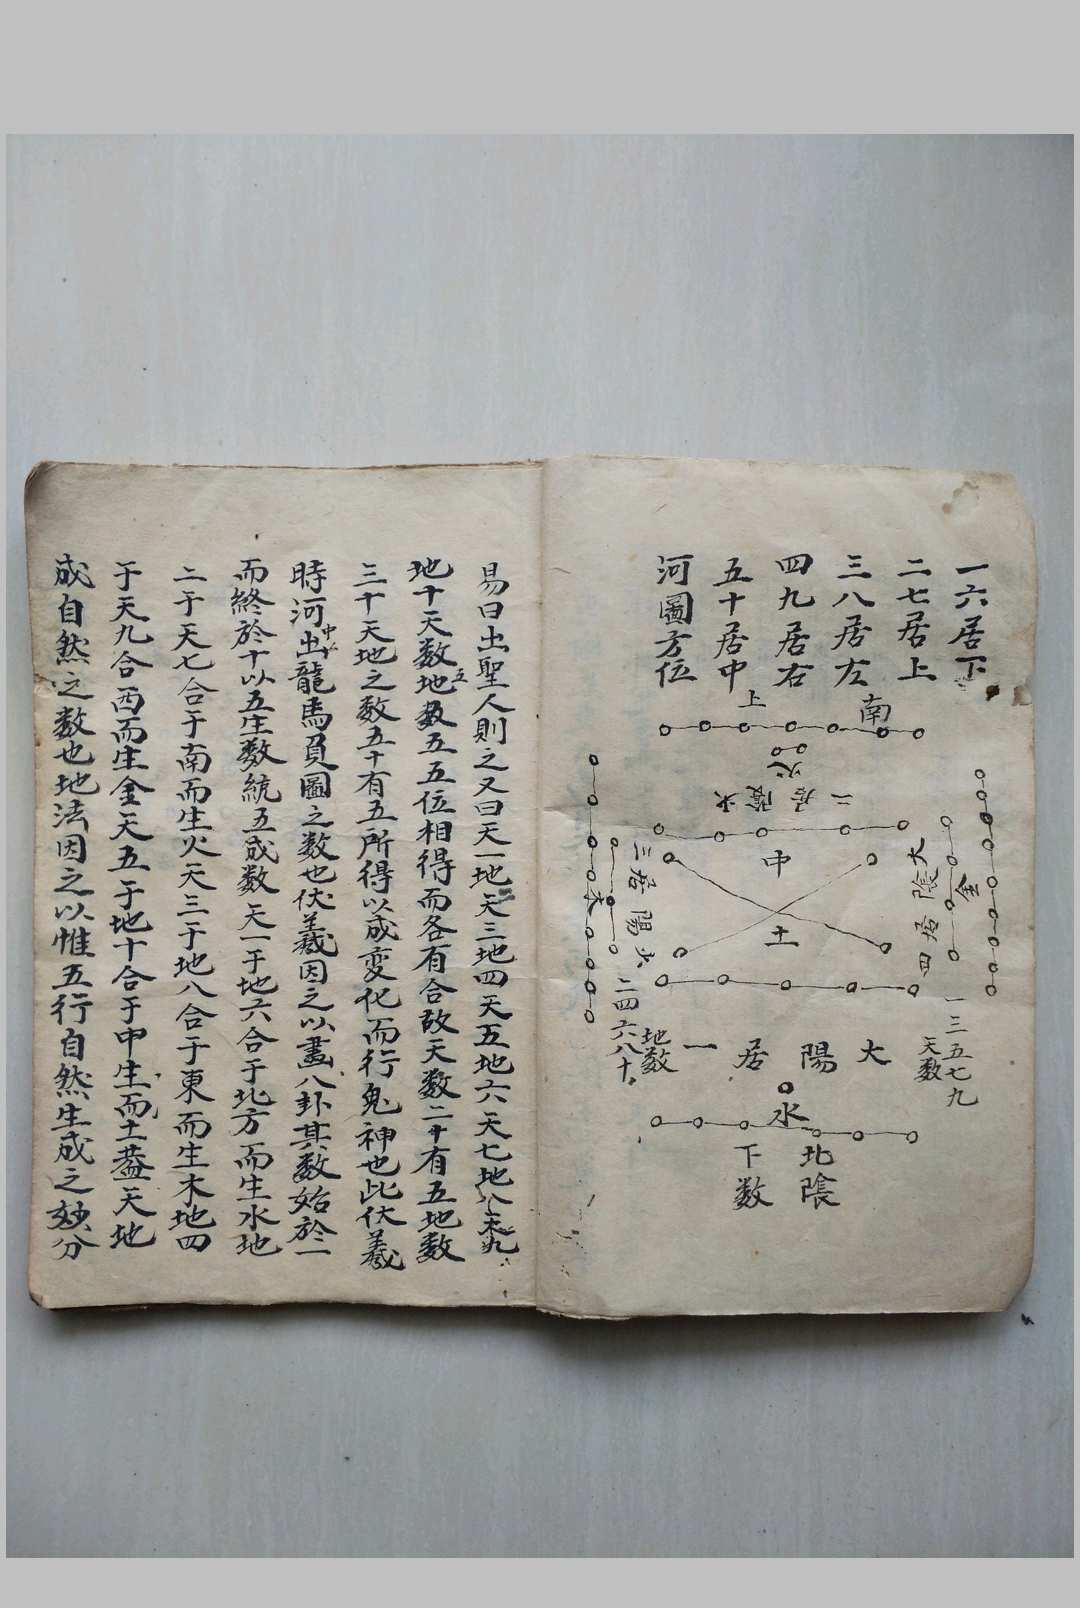 一六居下
二七居上
三八居左
四九居右
五十居中
河圖方位
南
上
火
二居陰火
中
土
大陰居四
金
三居陽少
木
一三五七九
天数
大陽居一
地数
二四六八十
水
北陰
下数
易曰出聖人則之又曰天一地二天三地四天五地六天七地八天九
地十天数五地数五五位相得而各有合故天数二十有五地数
三十天地之数五十有五所得以成变化而行鬼神也此伏羲
時河中出龍馬負圖之数也伏羲因之以畫八卦其数始於一
而終於十以五生数統五成数天一于地六合于北方而生水地
二于天七合于南而生火天三于地八合于東而生木地四
于天九合西而生金天五于地十合于中生而土蓋天地
成自然之数也地法因之以惟五行自然生成之妙分